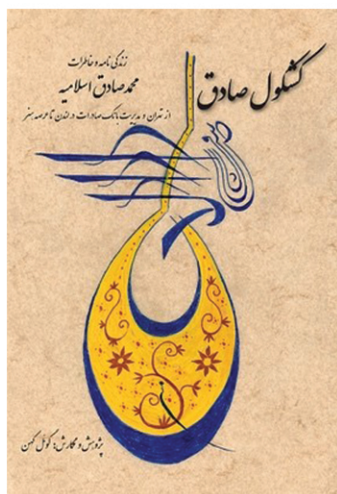 کشکول صادق
زندگی نامه و خاطرات
محمد صادق اسلامیه
از تهران و مدیریت بانک صادرات در لندن تا عرصه هنر
پژوهش و نگارش: گوئل کهن